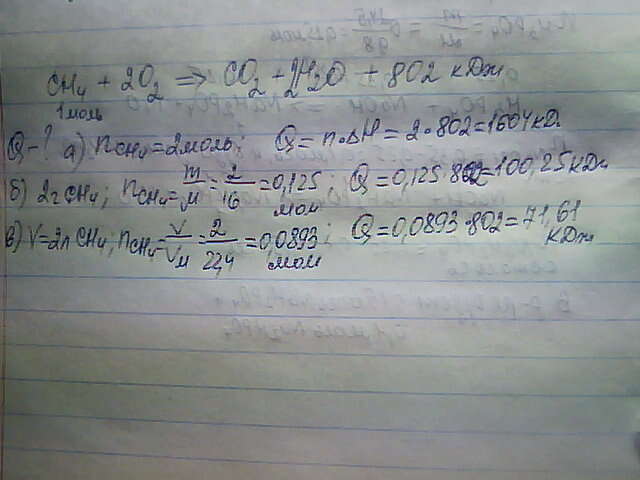 CH₄ + 2O₂ => CO₂ + 2H₂O + 802 кДж
1 моль
Q - ? а) nCH₄ = 2 моль; Q = n·ΔH = 2·802 = 1604 кДж
б) 2г CH₄; nCH₄ = m/M = 2/16 = 0,125 моль; Q = 0,125·802 = 100,25 кДж
в) V = 2л CH₄; nCH₄ = V/Vм = 2/22,4 = 0,0893 моль; Q = 0,0893·802 = 71,61 кДж